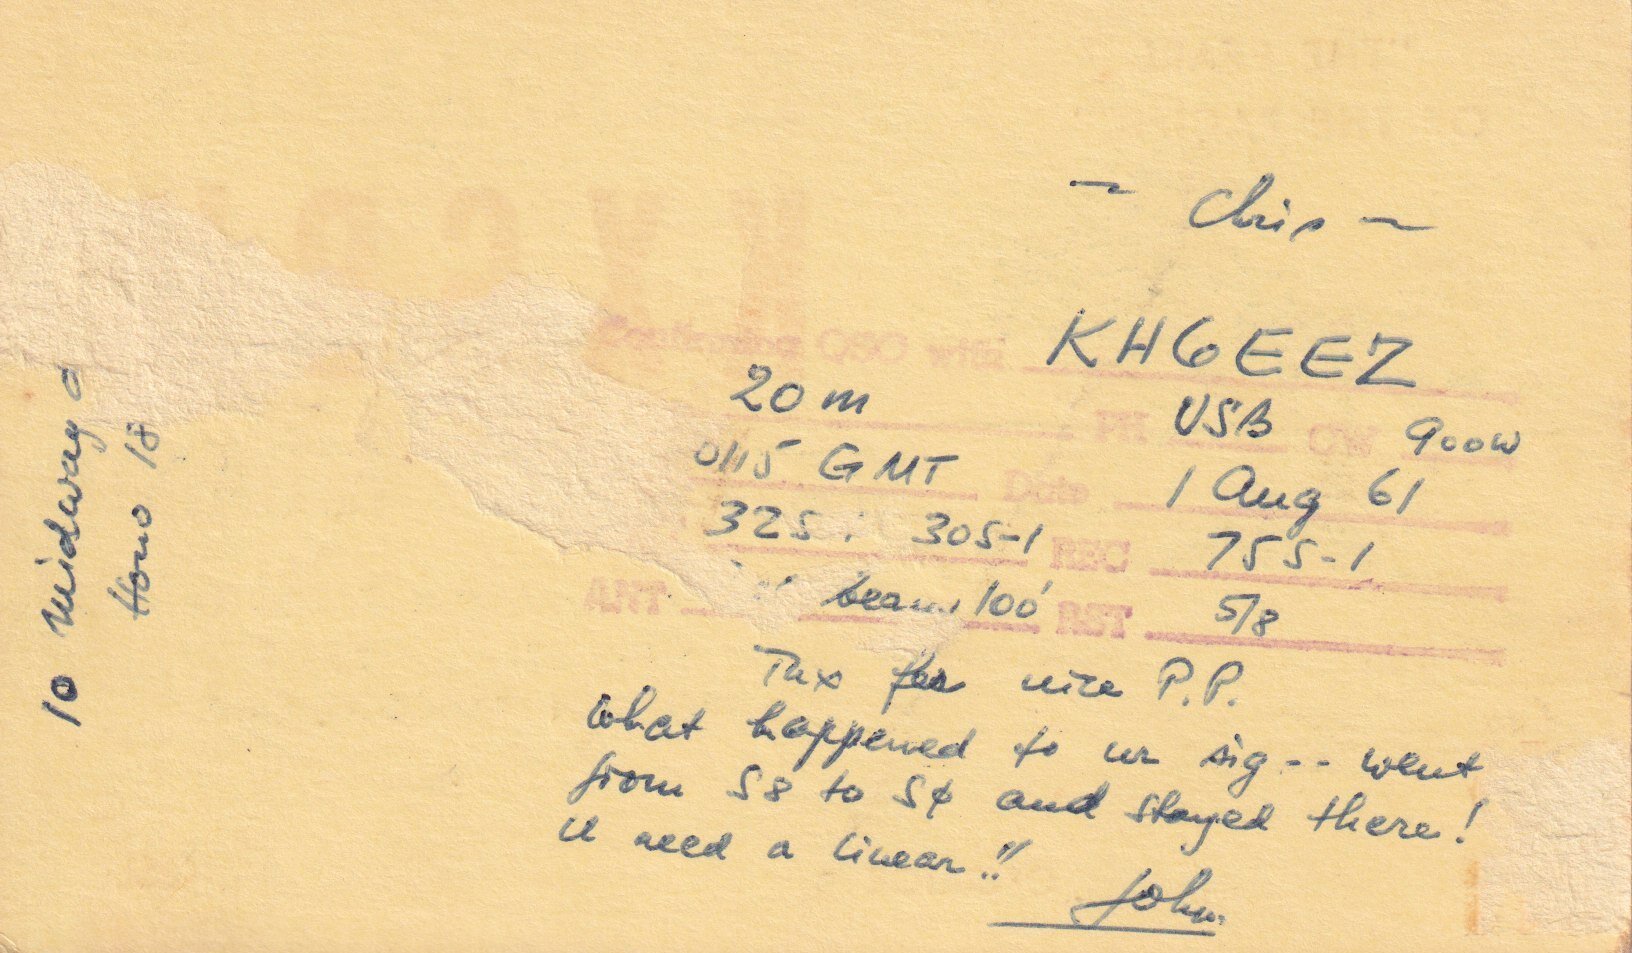 ~ Chris ~
Confirming QSO with KH6EEZ
20 m PH USB CW 900W
0115 GMT Date 1 Aug 61
32S- 30S-1 REC 75S-1
ANT beam 100' RST 5/8
Tnx fer nice P.P.
What happened to ur sig -- went
from S8 to S4 and stayed there!
U need a linear!!
John
10 Midway
Hono 18